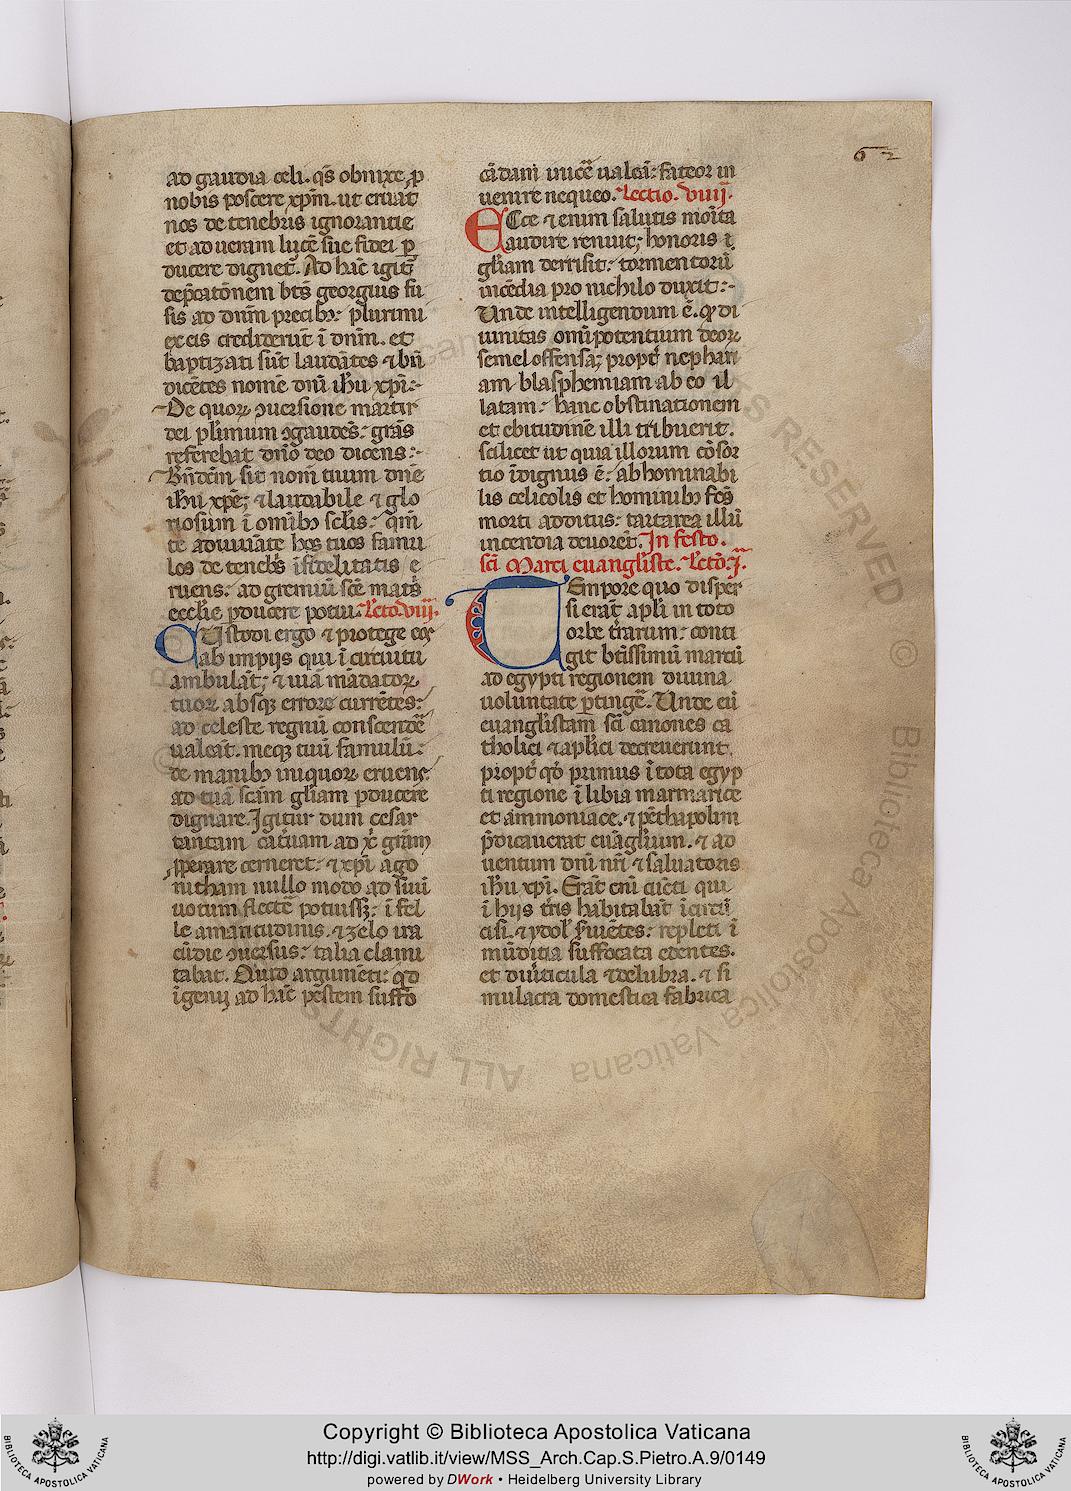 62
ad gaudia celi. q̄s obnixe p̱
nobis poscere xp̄m. ut eruat
nos de tenebris ignorantie
et ad ueram lucē sue fidei p̱
ducere dignet᷑. Ad hāc igit᷑
dep̄catōnem bt̄s georgius fu
sis ad dn̄m precibꝫ: plurimi
ex eis crediderūt ī dn̄m. et
baptizati sūt laudātes ⁊ bn̄
dicētes nomē dn̄i ih̄u xp̄i:-
De quoꝝ ꝯuersione martir
dei pl'imum ꝯgaudēs: gr̄as
referebat dn̄o deo dicens:-
Bn̄dc̄m sit nom̄ tuum dn̄e
ih̄u xp̄e; ⁊ laudabile ⁊ glo
riosum ī omībꝫ sc̄lis: qm̄
te adiuuāte hos tuos famu
los de tenebͥs īfidelitatis e
ruens: ad gremiū sc̄e mat̄s
ecclīe p̱ducere potui. Lc̄to. viij.
CUstodi ergo ⁊ protege eos
ab impijs qui ī circuitu
ambulāt; ⁊ uiā mādatoꝝ
tuoꝝ absqꝫ errore currētes:
ad celeste regnū conscendē
ualeāt. meqꝫ tuū famulū:
de manibꝫ iniquoꝝ eruens:
ad tuā sc̄am gl'iam p̱ducere
dignare. Igitur dum cesar
tantam cat̄uam ad xͥ gr̄am
sperare cerneret: ⁊ xp̄i ago
nitham nullo modo ad suū
uotum flectē potuissꝫ: ī fel
le amaritudinis. ⁊ zelo ira
cūdie ꝯuersus: talia clami
tabat. Quid argumēti: qd̄
īgenij ad hāc pestem suffo
cādam inicē ualeā: fateor in
uenire nequeo. Lectio. viiij.
ECce ⁊ enim salutis moīta
audire renuit; honoris ī.
gl'iam derrisit: tormentorū
incēdia pro nichilo duxit:-
Unde intelligendum ē. qd̄ di
uinitas omīpotentium deoꝝ
semel offensa; propt̄ nephari
am blasphemiam ab eo il
latam: hanc obstinationem
et ebitudinē illi tribuerit.
scilicet ut quia illorum cōsor
tio īdignus ē: abhominabi
lis celicolis et hominibꝫ fc̄s
morti additus: tartarea illū
incendia deuorēt. In festo.
sc̄i Marci euangl'iste. Lc̄tō. j.
TEmpore quo disper
si erāt apl̄i in toto
orbe t̄rarum: conti
git bt̄issimū marcū
ad egypti regionem diuina
uoluntate p̱tingē. Unde eū
euangl'istam sc̄i canones ca
tholici ⁊ apl'ici decreuerunt.
propt̄ qd̄ primus ī tota egyp
ti regione ī libia marmarice
et ammoniace. ⁊ pēthapolim
p̄dicauerat euāglium. ⁊ ad
uentum dn̄i nr̄i ⁊ saluatoris
ih̄u xp̄i. Erāt en̄i cūcti qui
ī hijs t̄ris habitabāt īcircū
cisi. ⁊ ydol' s̄uiētes: repleti ī
mūditia suffocata edentes.
et diūticula ⁊ delubra. ⁊ si
mulacra domestica fabrica
© Biblioteca Apostolica Vaticana ALL RIGHTS RESERVED
Copyright © Biblioteca Apostolica Vaticana
http://digi.vatlib.it/view/MSS_Arch.Cap.S.Pietro.A.9/0149
powered by DWork • Heidelberg University Library
BIBLIOTECA APOSTOLICA VATICANA
BIBLIOTECA APOSTOLICA VATICANA